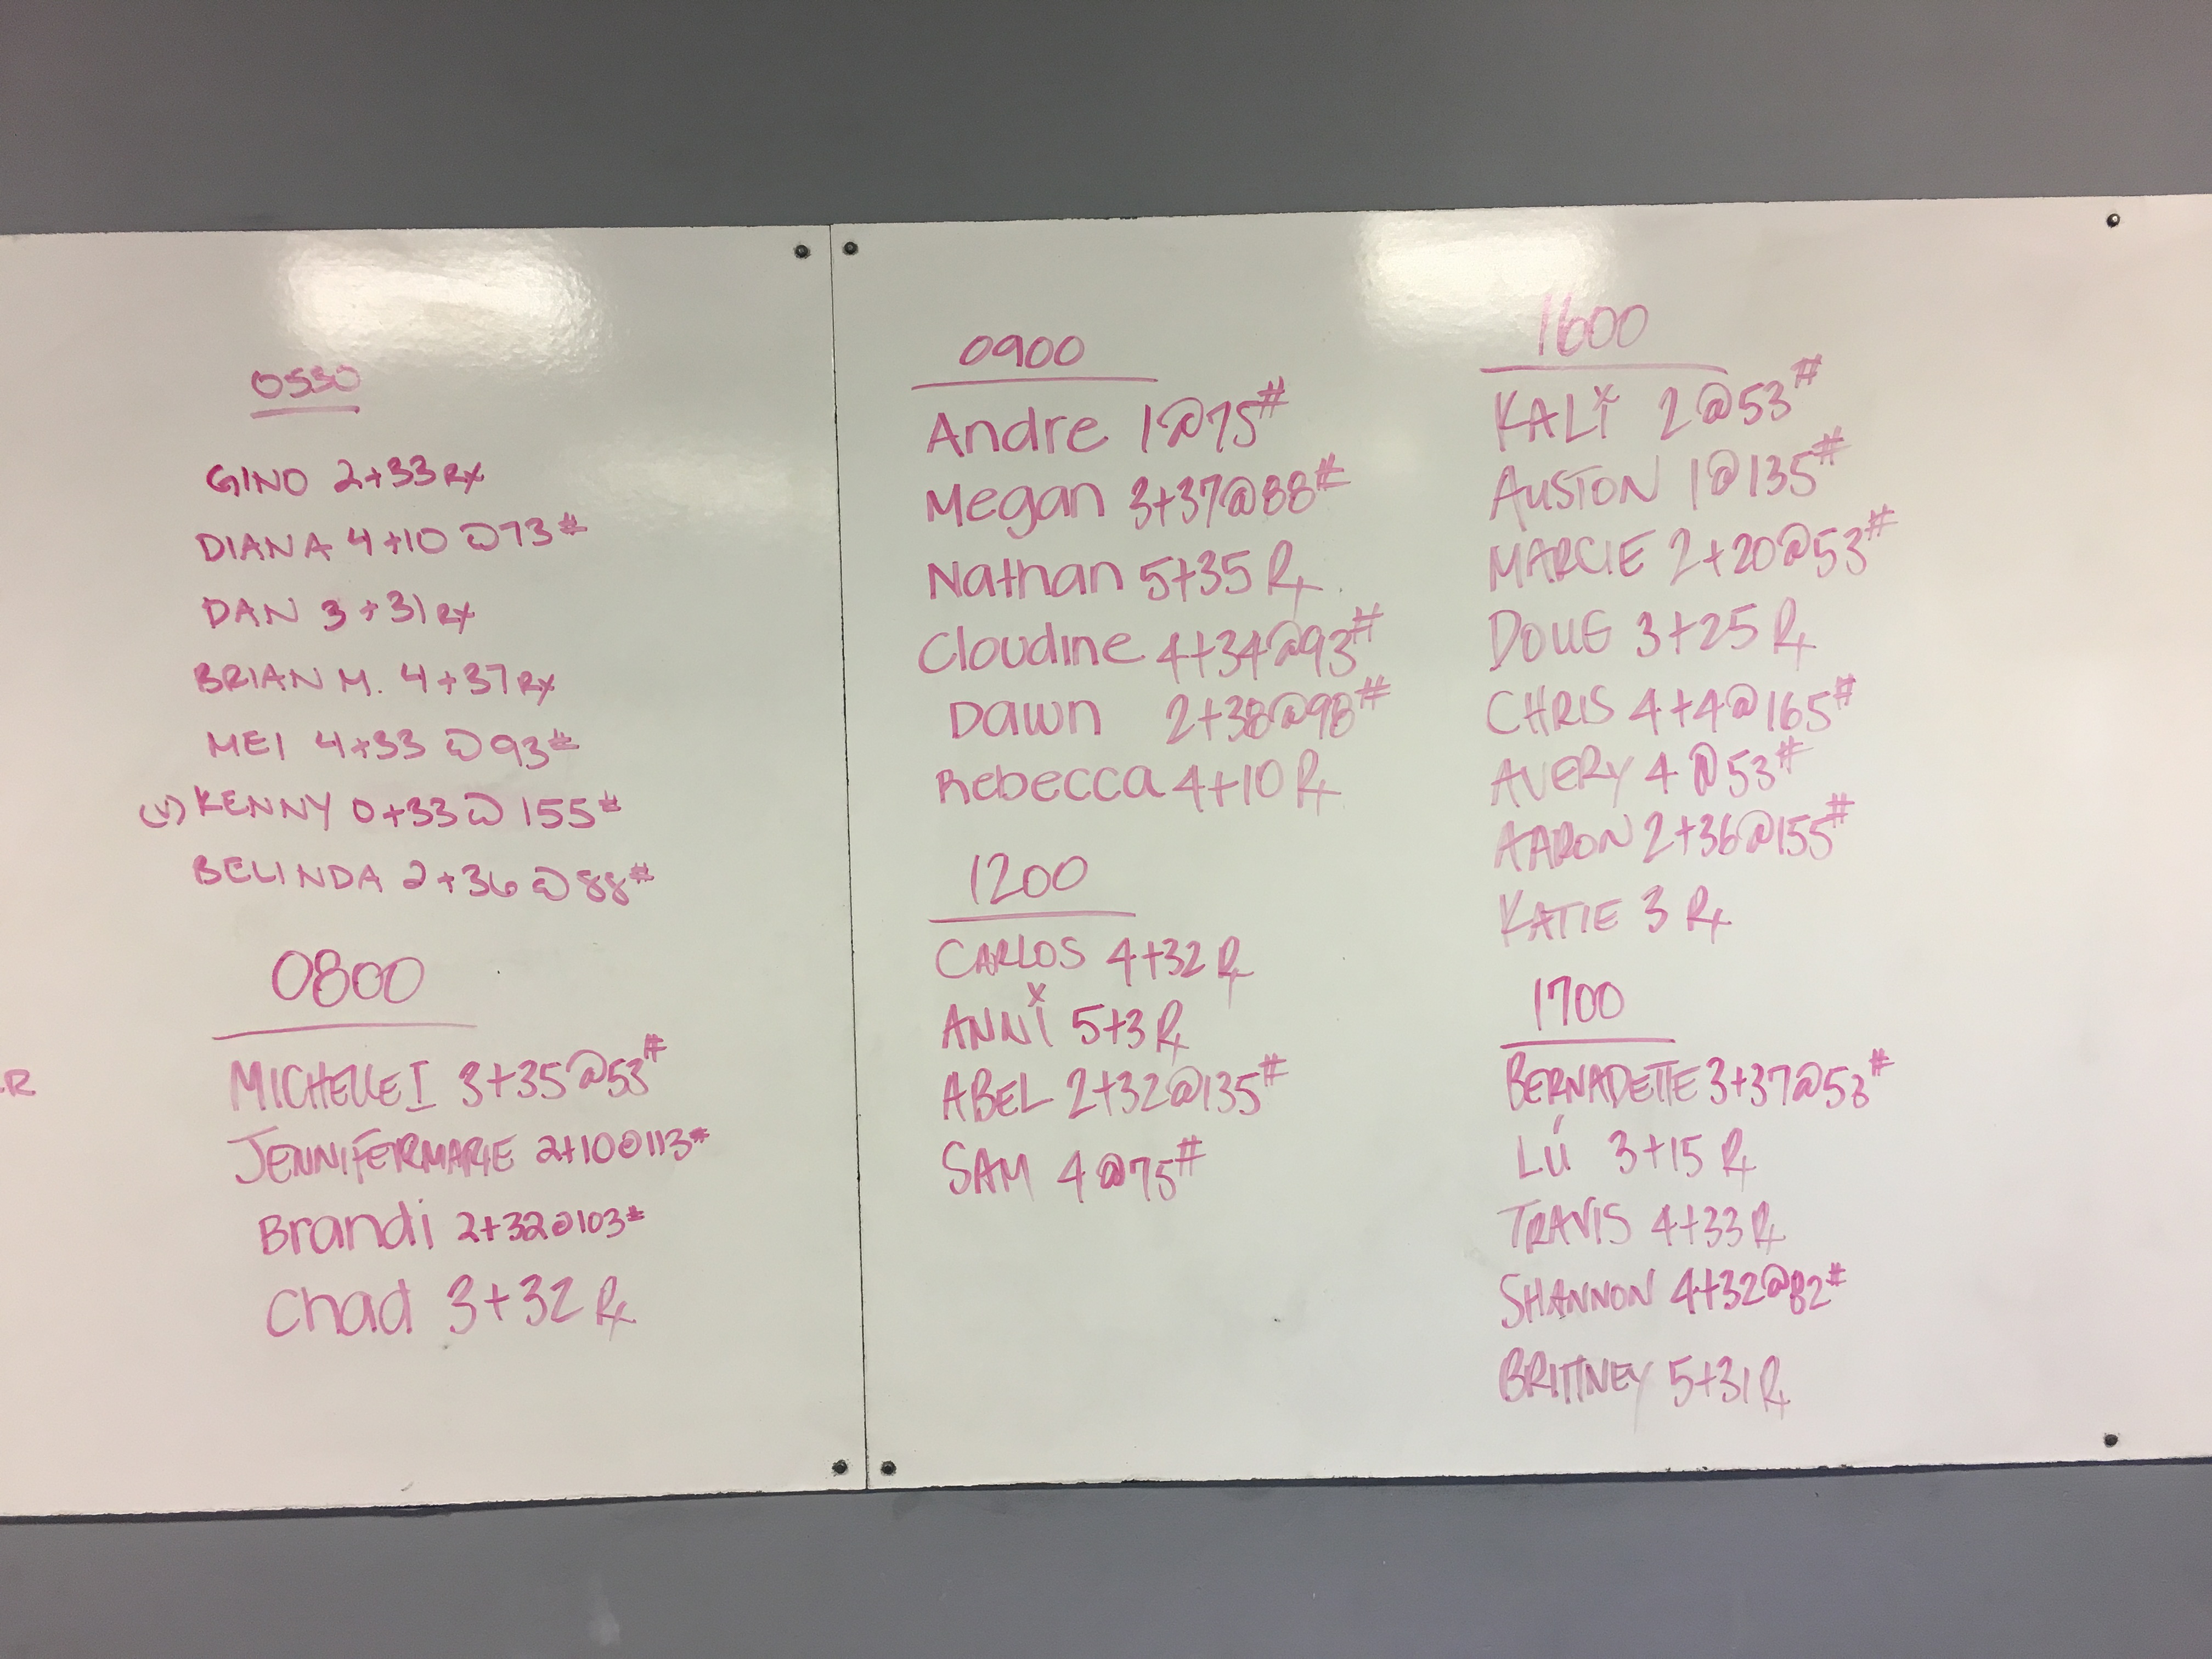 0530
GINO 2+33 Rx
DIANA 4+10 @ 73#
DAN 3+31 Rx
BRIAN M. 4+37 Rx
MEI 4+33 @ 93#
(V) KENNY 0+33 @ 155#
BELINDA 2+36 @ 88#
0800
MICHELLE I 3+35@53#
JENNIFERMARIE 2+10@113#
Brandi 2+32@103#
Chad 3+32 Rx
R
0900
Andre 1@75#
Megan 3+37@88#
Nathan 5+35 Rx
Cloudine 4+34@93#
Dawn 2+38@98#
Rebecca 4+10 Rx
1200
CARLOS 4+32 Rx
ANNI 5+3 Rx
ABEL 2+32@135#
SAM 4@75#
1600
KALI 2@53#
AUSTON 1@135#
MARCIE 2+20@53#
DOUG 3+25 Rx
CHRIS 4+4@165#
AVERY 4@53#
AARON 2+36@155#
KATIE 3 Rx
1700
BERNADETTE 3+37@53#
LÚ 3+15 Rx
TRAVIS 4+33 Rx
SHANNON 4+32@82#
BRITTNEY 5+31 Rx